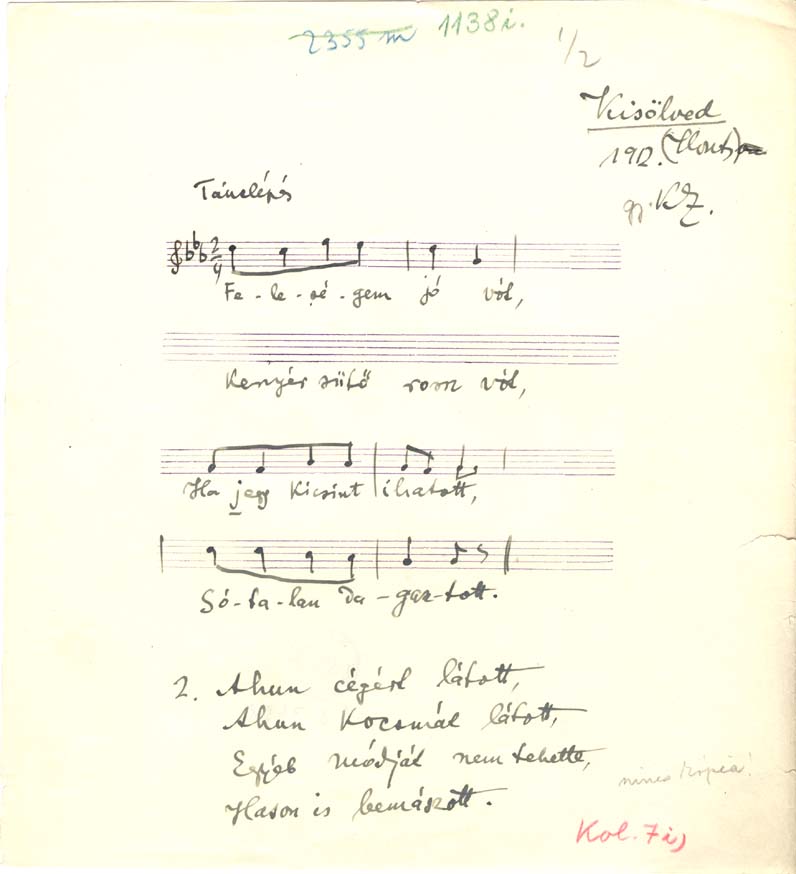 2355 m 1138i.
1/2
Kisölved
(Hont)
1912.
gy. KZ.
Tánclépés
2/4
Fe-le-sé-gem jó vót,
Kenyér sütő rossz vót,
Ha jegy kicsint ihatott,
Só-ta-lan da-gasz-tott.
2. Ahun cégért látott,
Ahun kocsmát látott,
Egyéb módját nem tehette,
Hason is bemászott.
nincs kópia!
Kol. 7i)